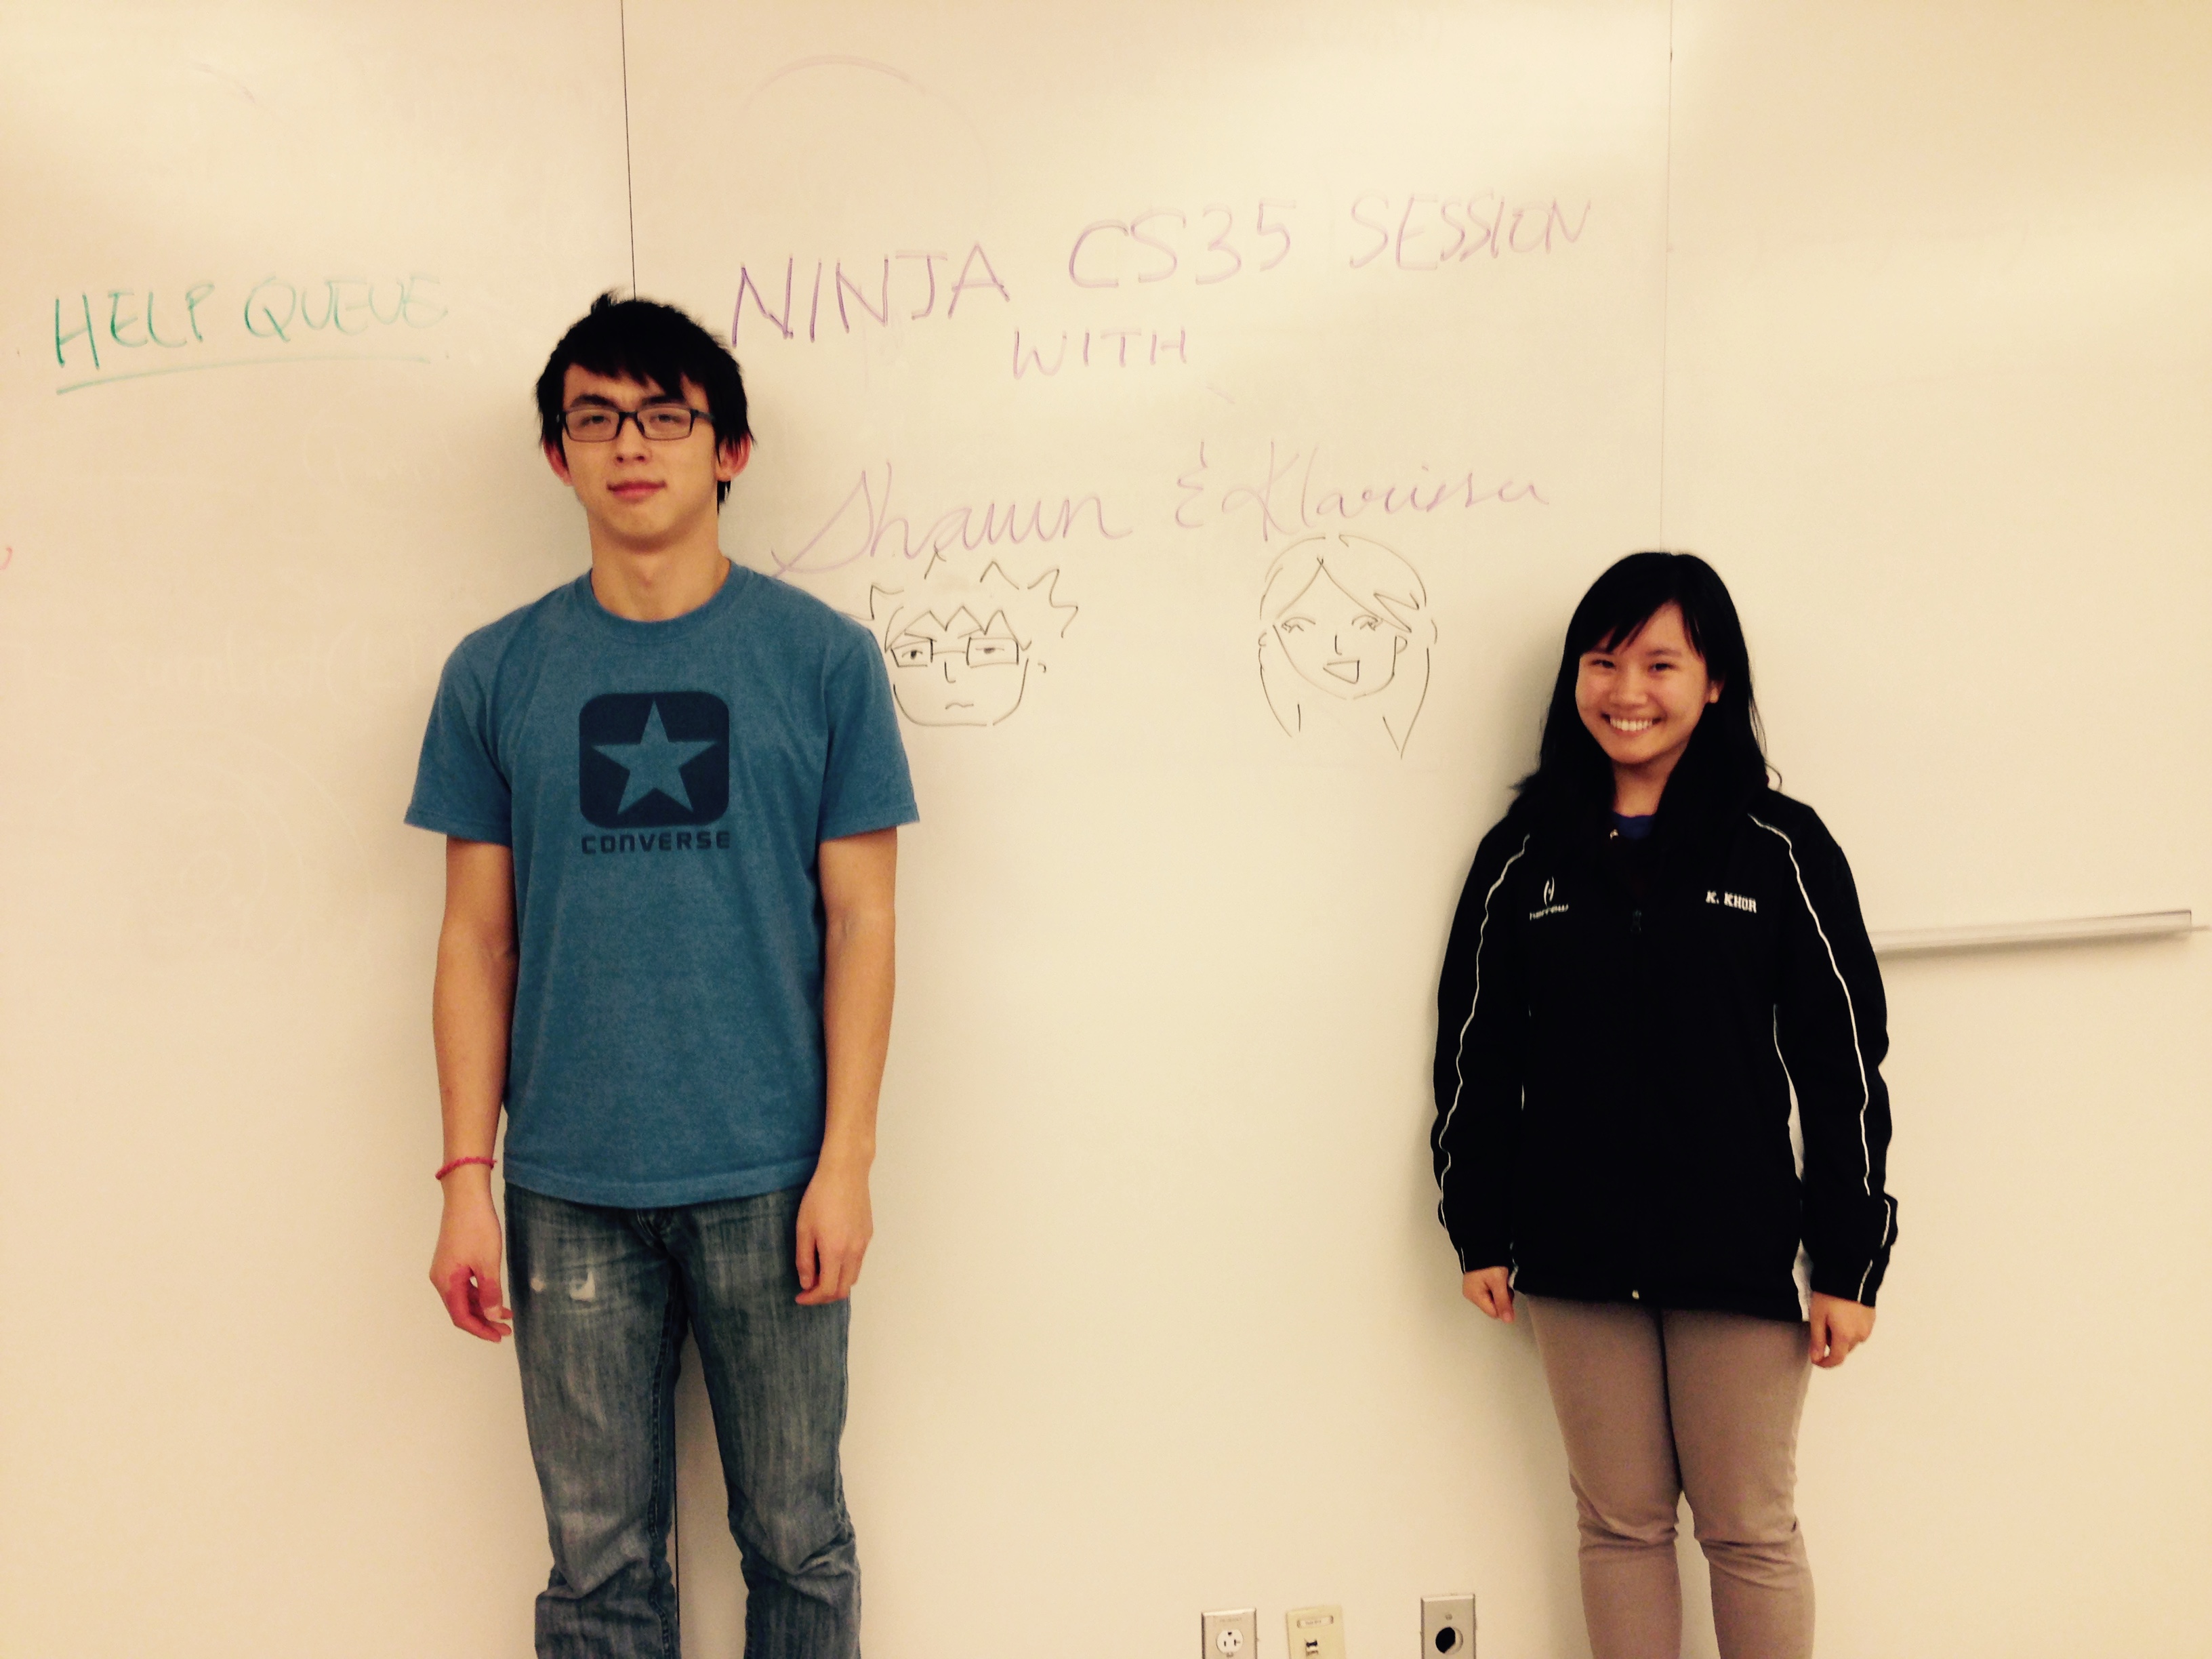 HELP QUEUE
NINJA CS35 SESSION
WITH
Shawn & Klarissa
CONVERSE
harrow
K. KHOR